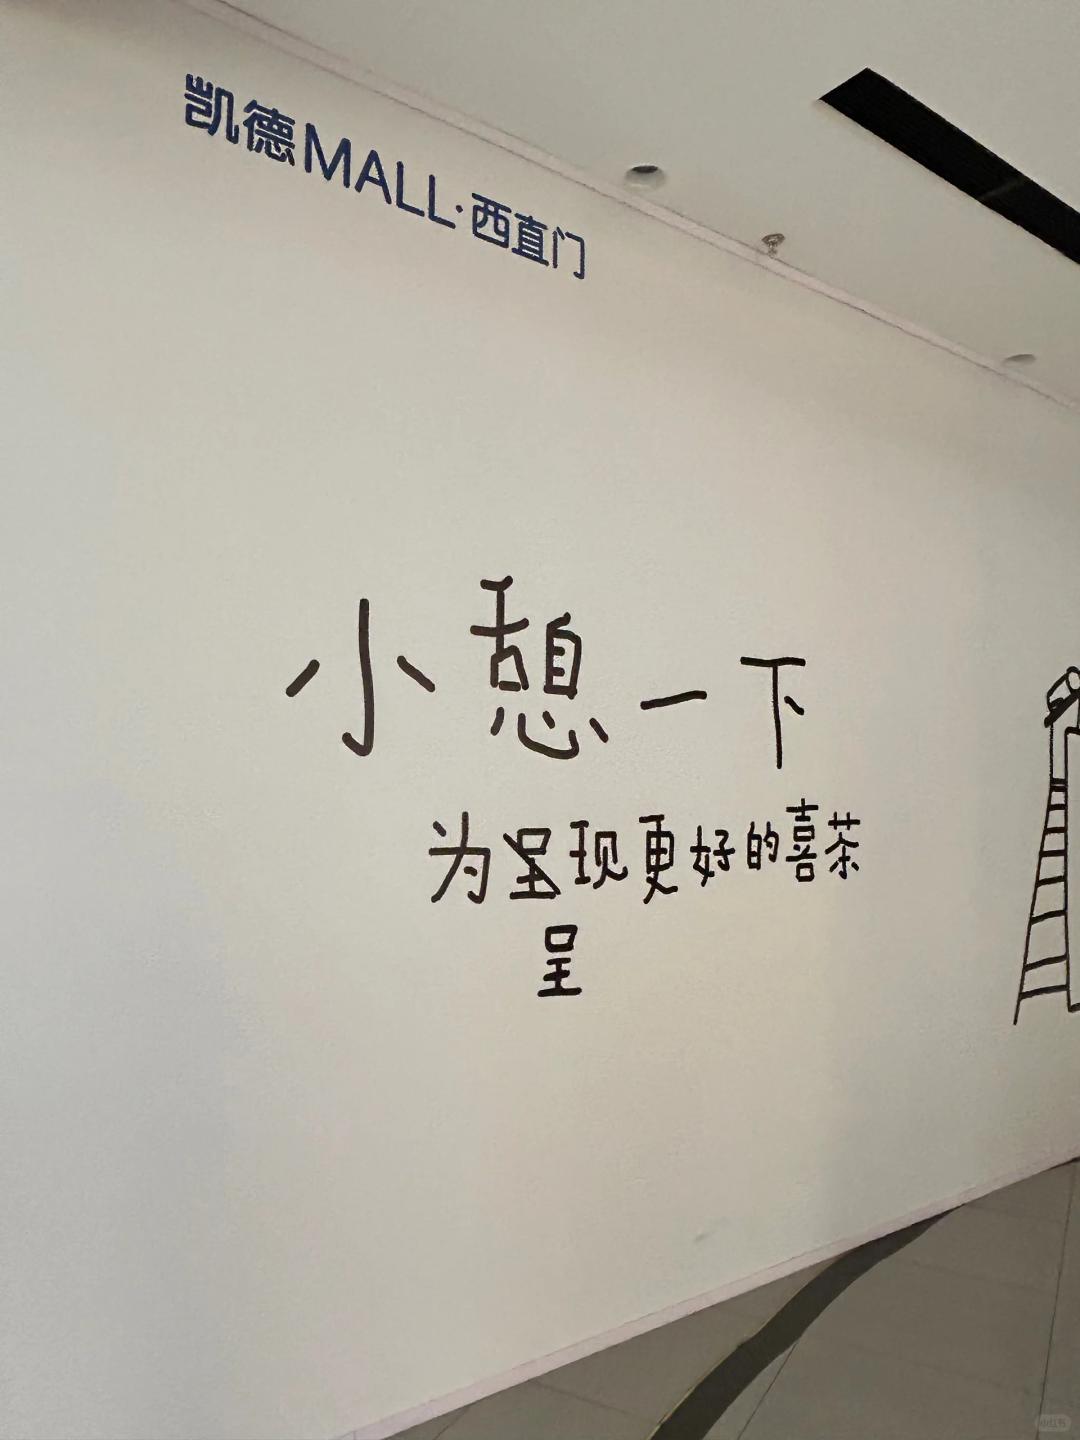 凯德MALL·西直门
小憩一下
为呈现更好的喜茶
呈
小红书